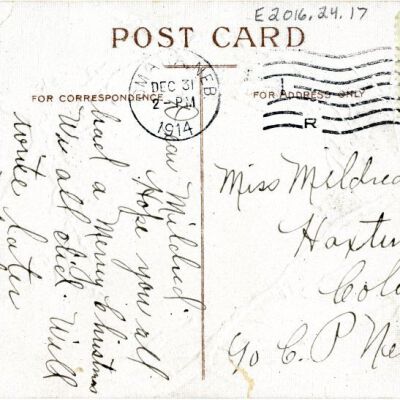 E2016.24.17
POST CARD
DEC 31
2-PM
1914
NEB
FOR CORRESPONDENCE
FOR ADDRESS ONLY
R
Dear Mildred:
Hope you all
had a Merry Christmas
We all did. Will
write later
Miss Mildred
Haxtun
Colo
c/o C. P. Ne